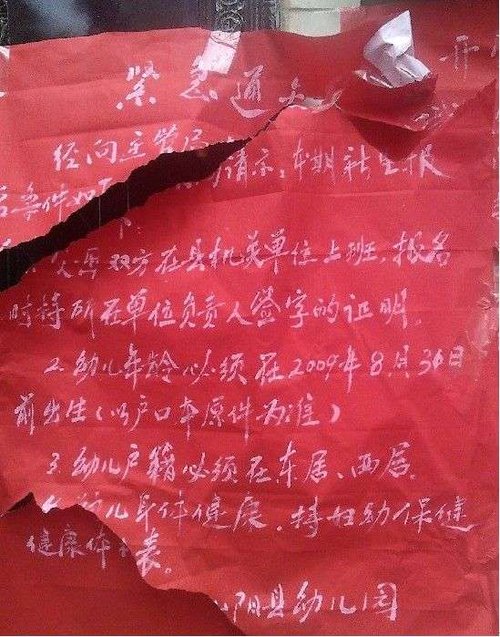 紧急通
经向主管局请示,本期新生报
名条件如下
父母双方在县机关单位上班,报名
时持所在单位负责人签字的证明。
2.幼儿年龄必须在2009年8月30日
前出生(以户口本原件为准)
3.幼儿户籍必须在东居、西居。
幼儿身体健康,持妇幼保健
健康体表。
阴县幼儿园